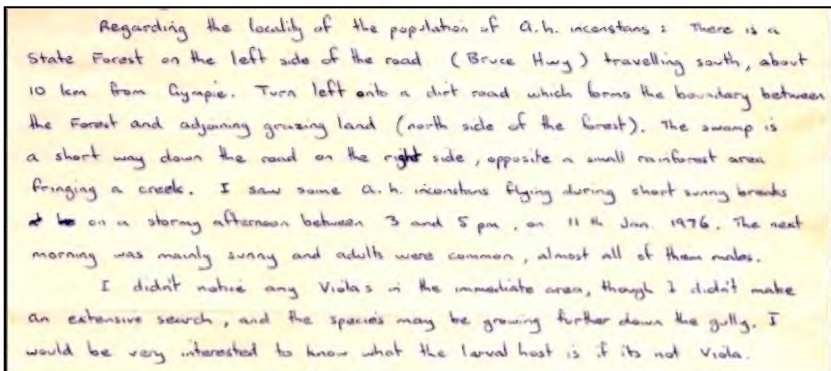 Regarding the locality of the population of A.h. inconstans: There is a
State Forest on the left side of the road (Bruce Hwy) travelling south, about
10 km from Gympie. Turn left onto a dirt road which forms the boundary between
the Forest and adjoining grazing land (north side of the forest). The swamp is
a short way down the road on the right side, opposite a small rainforest area
fringing a creek. I saw some A.h. inconstans flying during short sunny breaks
on a stormy afternoon between 3 and 5 pm, on 11th Jan. 1976. The next
morning was mainly sunny and adults were common, almost all of them males.
I didn't notice any Violas in the immediate area, though I didn't make
an extensive search, and the species may be growing further down the gully. I
would be very interested to know what the larval host is if its not Viola.